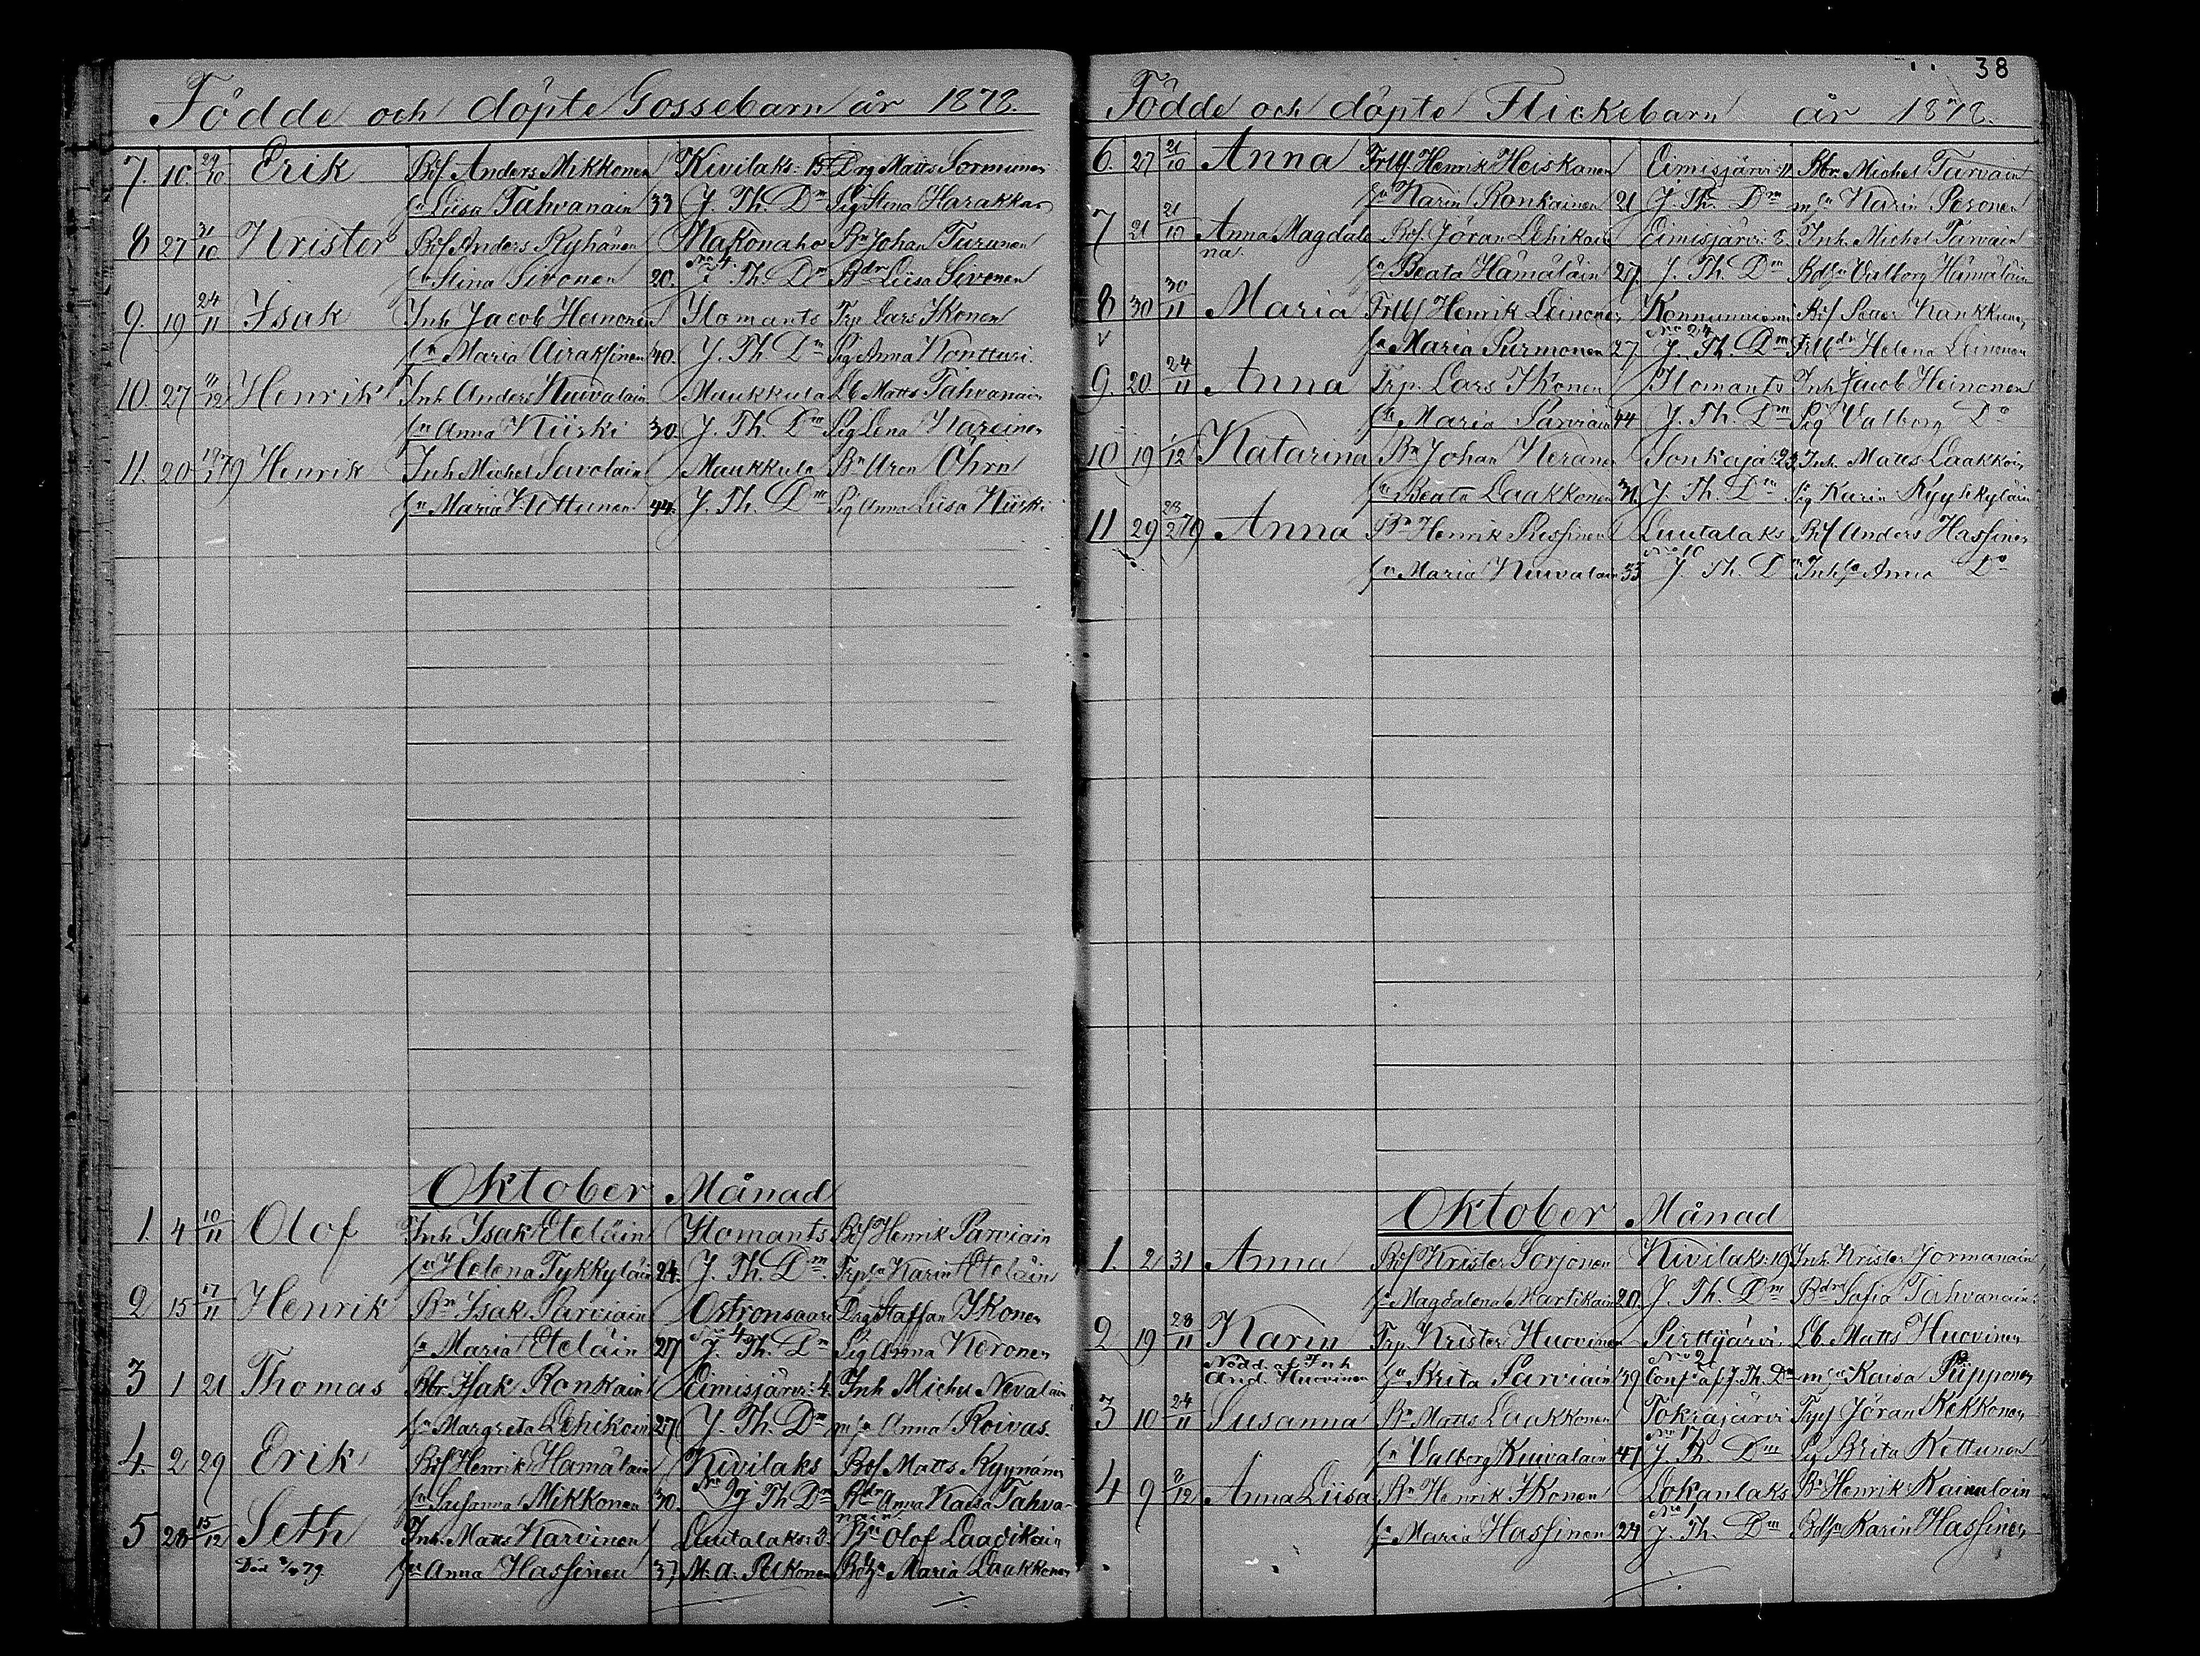 Födde och döpte Gossebarn år 1878.
7. 10. 29/10 Erik Bdf Anders Mikkonen Kivilaks: 15. Drg Matts Sormunen
hu Liisa Tahvanain 33 J. Th. Dm Pig Stina Harakka
8 27 31/10 Krister Bdf Anders Ryhänen Hakonaho Bn Johan Turunen
hu Stina Sivonen 20. No 4. J. Th. Dm Bdr Liisa Sivonen
9. 19 24/11 Isak Inh Jacob Heinonen Ilomants Trp Lars Ikonen
hu Maria Airaksinen 40. J. Th. Dm Pig Anna Kontturi.
10. 27 8/12 Henrik Inh Anders Kuivalain Maukkula Lb Matts Tahvanain
hu Anna Kiiski 30. J. Th. Dm Pig Lena Karvinen
11. 20 19/1 79 Henrik Inh Michel Savolain Maukkula Bn Aron Öhrn
hu Maria Kottunen 44. J. Th. Dm Pig Anna Liisa Kiiski
Oktober Månad
1. 4 10/11 Olof Inh Isak Eteläin Ilomants Bdf Henrik Parviain
hu Helena Tykkyläin 24. J. Th. Dm. Trphu Karin Eteläin
2 15 17/11 Henrik Bn Isak Parviain Ostronsaari Drg Staffan Ikonen
hu Maria Eteläin 27 No 4 J. Th. Dm Pig Anna Koronen
3 1 21 Thomas Bbr. Isak Ronkain Eimisjärvi: 4. Inh Michel Nevalain
hu Margreta Lehikoin 27 J. Th. Dm m hu Anna Roivas.
4. 2 29 Erik Bdf Henrik Hämäläin Kivilaks Bdf Matts Kyynäräin
hu Susanna Mikkonen 30. No 9 J Th Dm Bdr Anna Kaisa Tahva-
nain.
5 28 15/12 Seth Inh. Matts Karvinen Luutalaks: 3. Bn Olof Laatikain
hu Anna Hassinen 37 M. A. Pelkonen Bdhu Maria Laakkonen
38
Födde och döpte Flickebarn år 1878.
6. 27 21/10 Anna Frlbf Henrik Heiskanen Eimisjärvi: 11 Bbr Michel Tarvain
hu Karin Ronkainen 21 J. Th. Dm m hu Karin Pesonen
7 21 21/10 Anna Magdale Bdf. Jöran Lehikoin Eimisjärvi: 8. Inh. Michel Tarvain
na. hu Beata Hämäläin 27. J. Th. Dm Bdhu Valborg Hämäläin
8 30 30/11 Maria Frlbf Henrik Leinonen Konnunniemi Bdf Petter Kankkunen
hu Maria Purmonen 27. No 24 J. Th. Dm Frlbdr Helena Leinonen
9. 20 24/11 Anna Trp. Lars Ikonen Ilomants Inh. Jacob Heinonen
hu Maria Parviain 44 J. Th. Dm Pig Valborg Do
10 19 1/12 Katarina Bn Johan Keränen Sonkaja: 23. Inh. Matts Laakkoin
hu Beata Laakkonen 31. J. Th. Dm Pig Karin Kyykyläin
11 29 23/2 79 Anna Bn Henrik Rissinen Luutalaks Bdf Anders Hassinen
hu Maria Kuivalain 33 No 10 J. Th. Dm Inhhu Anna Do
Oktober Månad
1. 2 31 Anna Bdf Krister Sorjonen Kivilaks: 19 Inh Krister Jormanain
hu Magdalena Martikain 20. J. Th. Dm Bdr Sofia Tahvanain
2 19 28/11 Karin Trp Krister Huovinen Sirttyjärvi Lb. Matts Huovinen
Nödd. af Inh
And. Huovinen hu Brita Parviain 39 No 2 Conf: af J. Th. Dm m hu Kaisa Piipponen
3 10 24/11 Susanna Bn Matts Laakkonen Tokrajärvi Jöran Kokkonen
hu Valborg Kuivalain 41 No 17 J. Th. Dm Pig Brita Kettunen
4 9 8/12 Anna Liisa Bn Henrik Ikonen Lokanlaks Bn Henrik Kainulain
hu Maria Hassinen 24 J. Th. Dm Bdhu Karin Hassinen